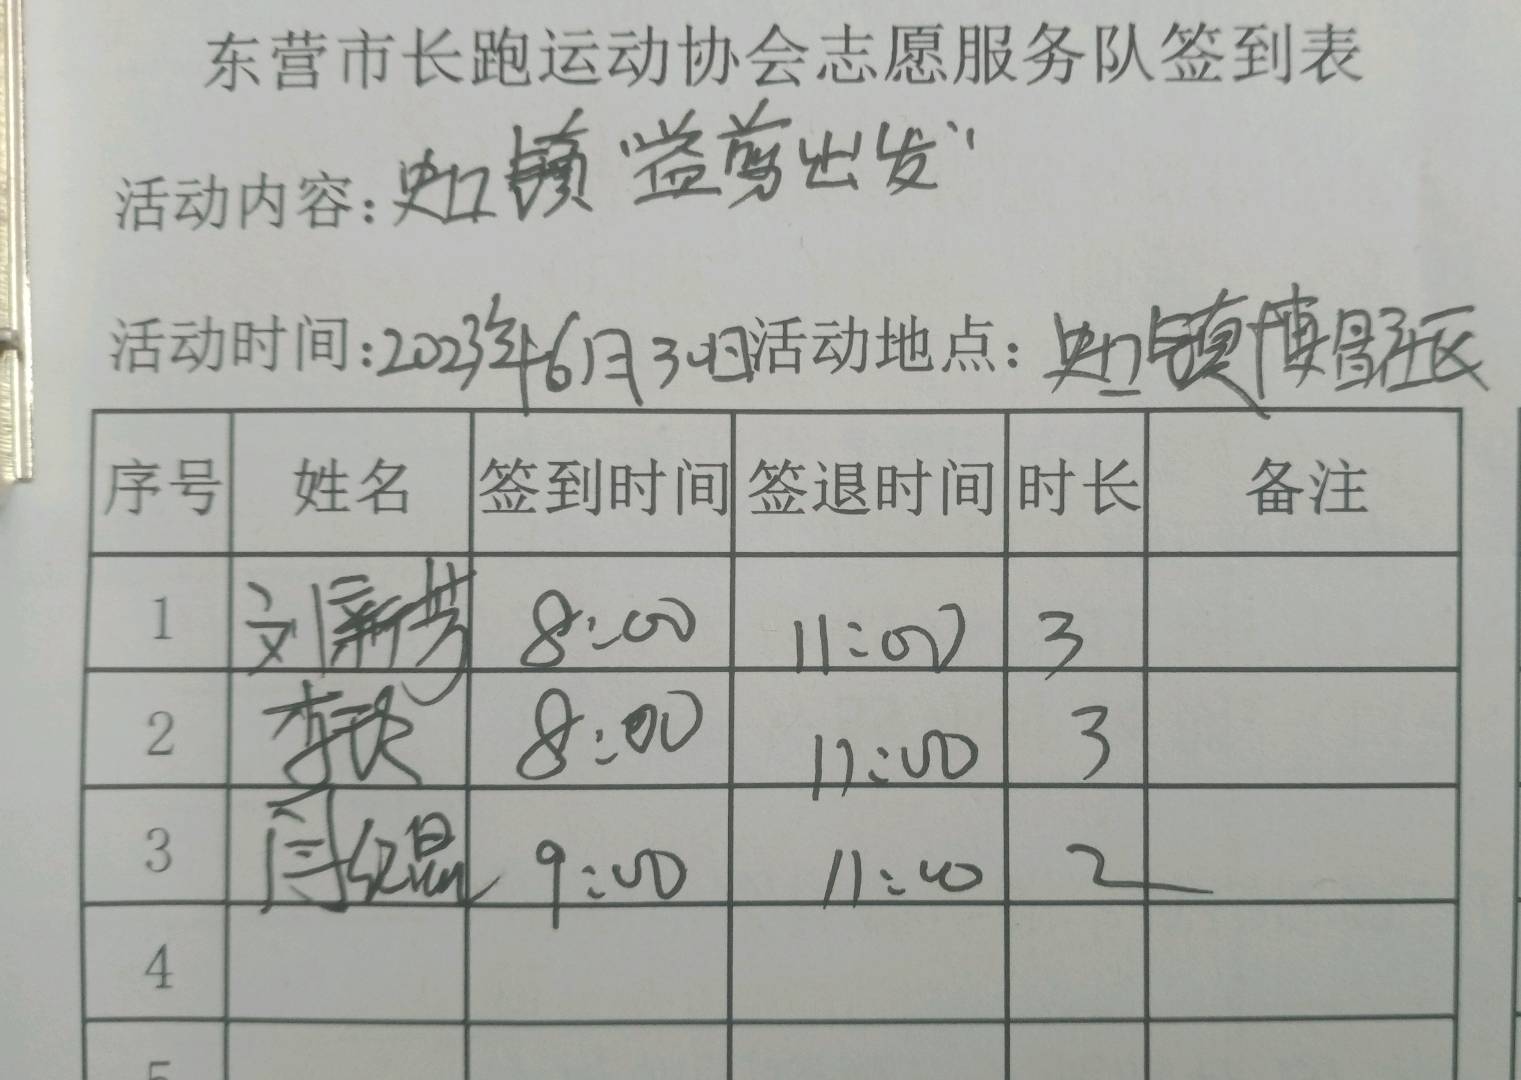 东营市长跑运动协会志愿服务队签到表
活动内容:史口镇“益剪出发”
活动时间:2023年6月30日 活动地点:史口镇博昌社区
序号 姓名 签到时间 签退时间 时长 备注
1 刘新芳 8:00 11:00 3
2 李 8:00 11:00 3
3 闫红昆 9:00 11:00 2
4
5